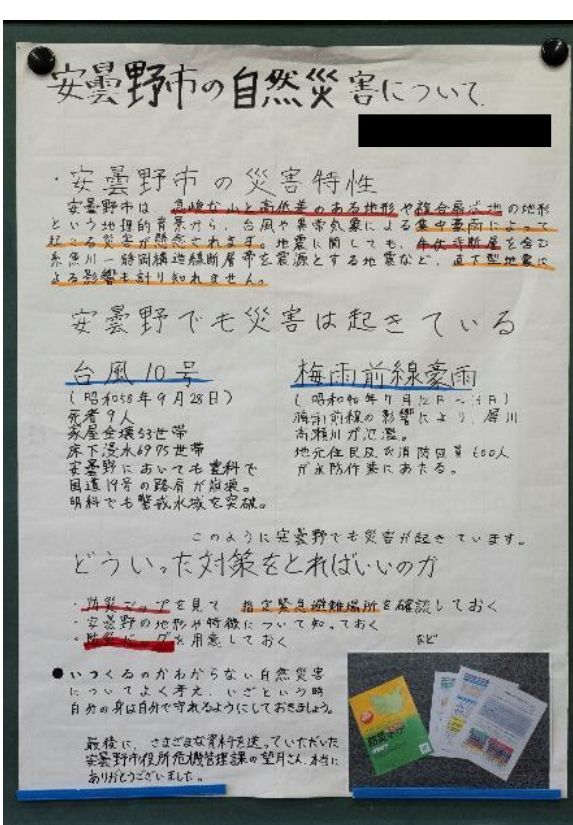 安曇野市の自然災害について
・安曇野市の災害特性
安曇野市は、急峻な山と高低差のある地形や複合扇状地の地形
という地理的背景から、台風や異常気象による集中豪雨によって
起こる災害が懸念されます。地震に関しても、牛伏寺断層を含む
糸魚川-静岡構造線断層帯を震源とする地震など、直下型地震に
よる影響も計り知れません。
安曇野でも災害は起きている
台風10号
(昭和58年9月28日)
死者9人
家屋全壊53世帯
床下浸水6975世帯
安曇野においても豊科で
国道19号の路肩が崩壊。
明科でも警戒水域を突破。
梅雨前線豪雨
(昭和 年7月12日~ 日)
梅雨前線の影響により、犀川
高瀬川が氾濫。
地元住民及び消防団員600人
が水防作業にあたる。
このように安曇野でも災害が起きています。
どういった対策をとればいいのか
・防災マップを見て 指定緊急避難場所を確認しておく
・安曇野の地形や特徴について知っておく
・防災バッグを用意しておく
など
●いつくるのかわからない自然災害
についてよく考え、いざという時
自分の身は自分で守れるようにしておきましょう。
最後に、さまざまな資料を送っていただいた
安曇野市役所危機管理課の望月さん、本当に
ありがとうございました。
防災マップ